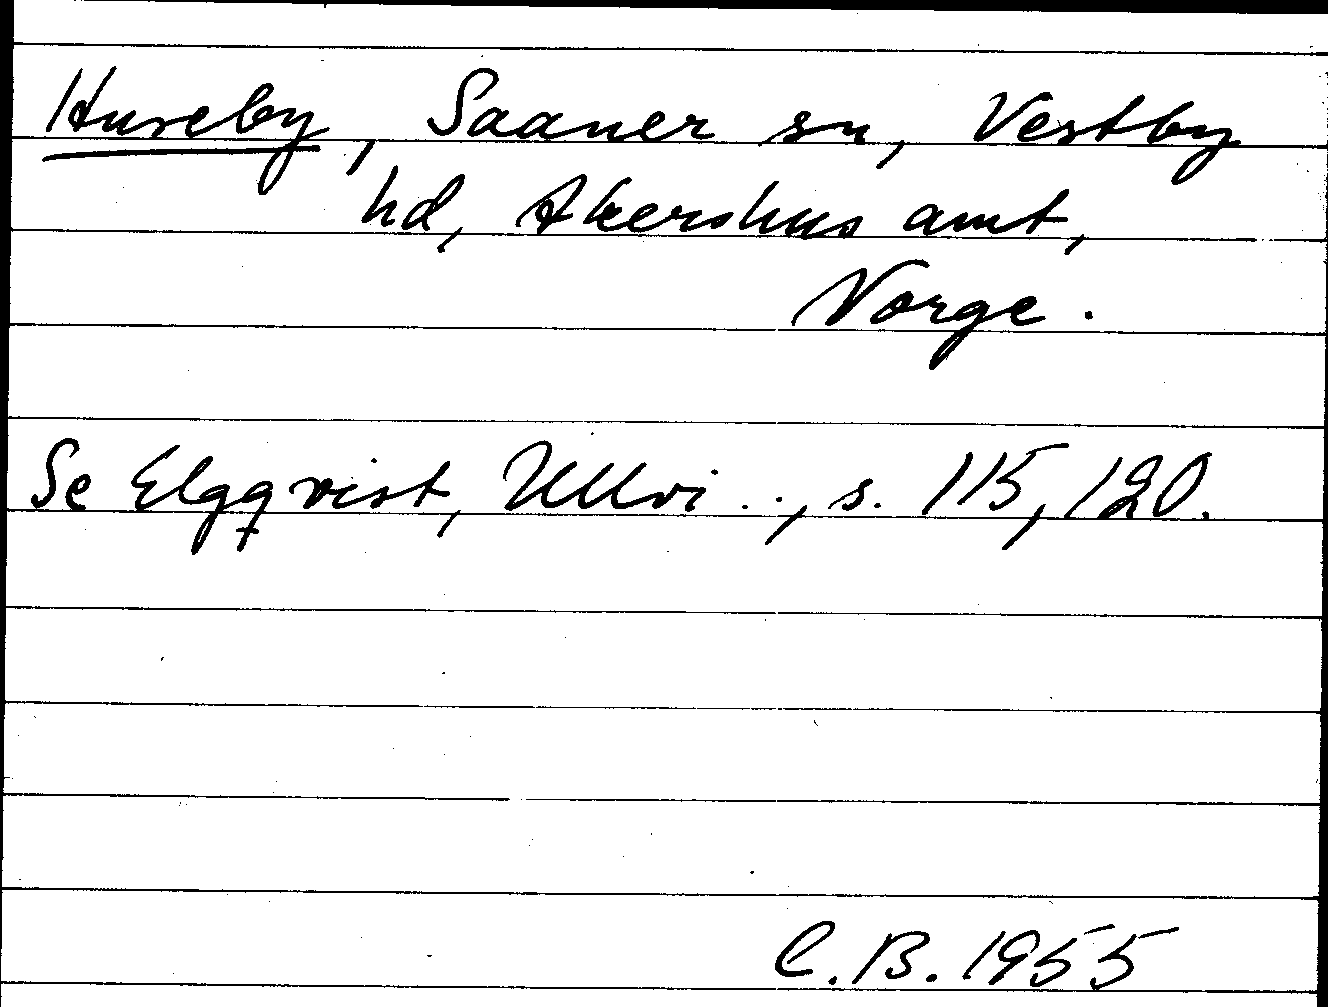 Huseby, Saaner sn, Vestby
hd, Akershus amt,
Norge.
Se Elgqvist, Ullvi .., s. 115, 120.
C.B. 1955